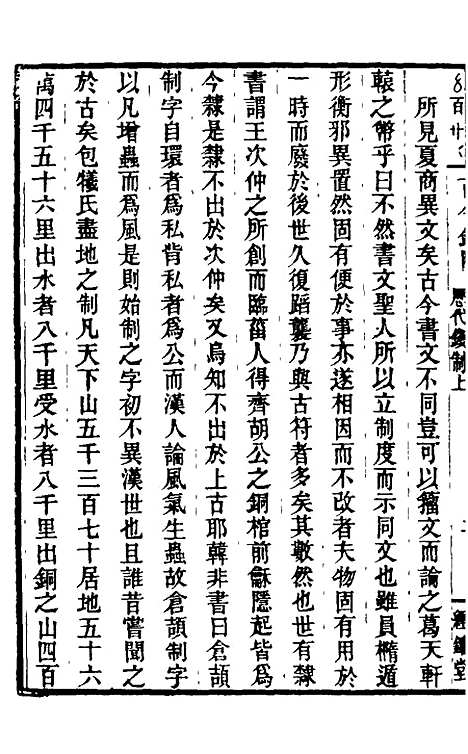 歷代錢制上
所見夏商異文矣古今書文不同豈可以籀文而論之葛天軒
轅之幣乎曰不然書文聖人所以立制度而示同文也雖員橢遁
形衡邪異置然固有便於事亦遂相因而不改者夫物固有用於
一時而廢於後世久復蹈襲乃與古符者多矣其數然也世有隸
書謂王次仲之所創而臨菑人得齊胡公之銅棺前龢隱起皆爲
今隸是隸不出於次仲矣又烏知不出於上古耶韓非書曰倉頡
制字自環者爲私背私者爲公而漢人論風氣生蟲故倉頡制字
以凡增蟲而爲風是則始制之字初不異漢世也且誰昔嘗聞之
於古矣包犧氏盡地之制凡天下山五千三百七十居地五十六
萬四千五十六里出水者八千里受水者八千里出銅之山四百